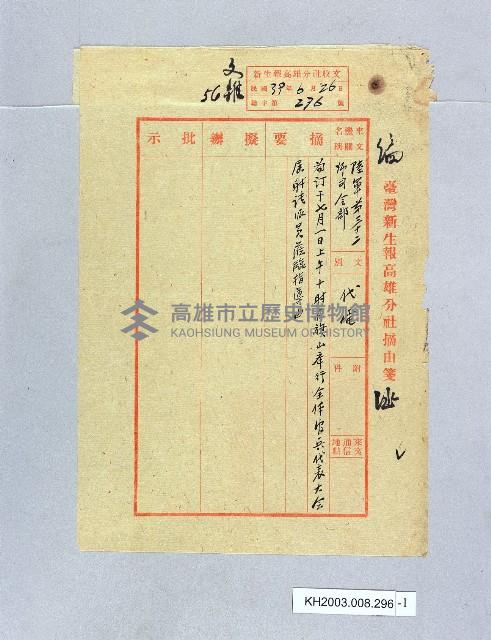 文雜
56
新生報高雄分社收文
民國39年6月26日
總字第296號
臺灣新生報高雄分社摘由箋
來文機關名稱
陸軍第三十二師司令部
文別
代電
附件
來文通信地點
摘要
為訂于七月一日上午十時在旗山舉行全体官兵代表大会
屆時請派員蒞臨指導由
擬辦
批示
高雄市立歷史博物館
KAOHSIUNG MUSEUM OF HISTORY
KH2003.008.296-1